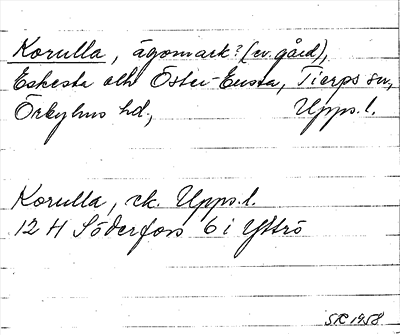 Korulla, ägomark? (ev. gård),
Eskesta och Öster-Ensta, Tierps sn,
Örbyhus hd., Upps. l.
Korulla, ek. Upps. l.
12 H Söderfors 6 i Yttrö
SK 1958.